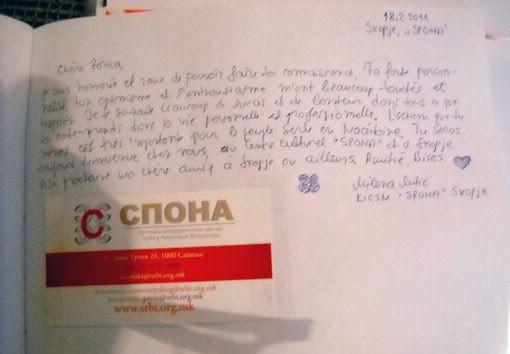 18.2.2011
Skopje, „SPONA"
Chère Zorica,
Je suis honorée et ravie de pouvoir faire ta connaissance. Ta forte person-
nalité, ton optimisme et l'enthousiasme m'ont beaucoup touchés et
Je te souhaite beaucoup du succès et de bonheur dans tous ce que
tu entreprends dans la vie personnelle et professionnelle. L'action que tu
mènes est très importante pour le peuple serbe en Macédoine. Tu seras
toujours bienvenue chez nous, au centre culturel "SPONA" et à Skopje.
À la prochaine ma chère amie, à Skopje ou ailleurs. Amitié, Bises
Milena
KICSM "SPONA" Skopje
С СПОНА
28, 1000 Скопје
@srbi.org.mk
@srbi.org.mk
press@srbi.org.mk
www.srbi.org.mk